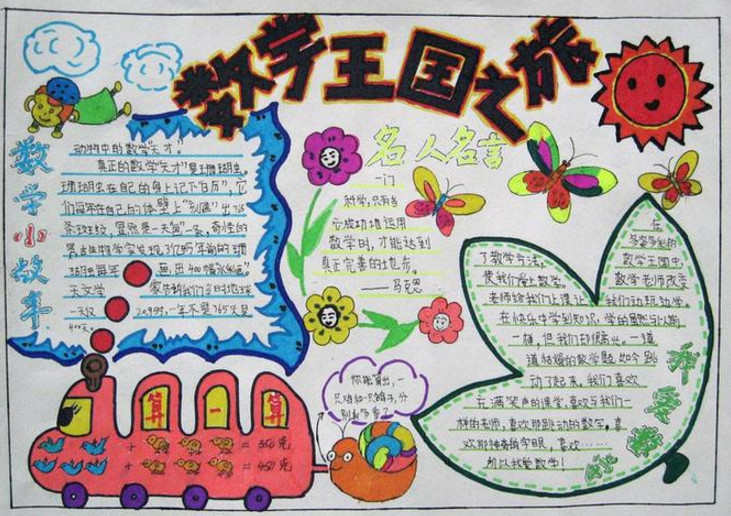 数学王国之旅
数学小故事
动物中的数学“天才”
真正的数学“天才”是珊瑚虫。
珊瑚虫在自己的身上记下“日历”,它
们每年在自己的体壁上“刻画”出
条
一天“画”一条。奇怪的
是古生物学家发现3亿5千年前的珊
瑚虫每年“画”出400幅“水彩画”。
天文学家告诉我们当时地球
一天仅21.9小时,一年不是365天是
400天。
名人名言
一门
科学,只有当
它成功地运用
数学时,才能达到
真正完善的地步。
——马克思
我爱数学
在
多姿多彩的
数学王国中,
数学老师改变
了教学方法,
使我们爱上数学。
老师给我们上课让我们动脑动学。
在快乐中学到知识,学的虽然与以前
一样,但我们却很高兴。一道
道枯燥的数学题如今跳
动了起来。我们喜欢
充满笑声的课堂,喜欢与我们一
样的老师,喜欢那跳动的数字,喜
欢那神奇的字眼,喜欢……
所以我爱数学!
你能算出,一
只鸡和一只鸭子,分
别重多少克?
算一算
+ = 500克
+ = 450克